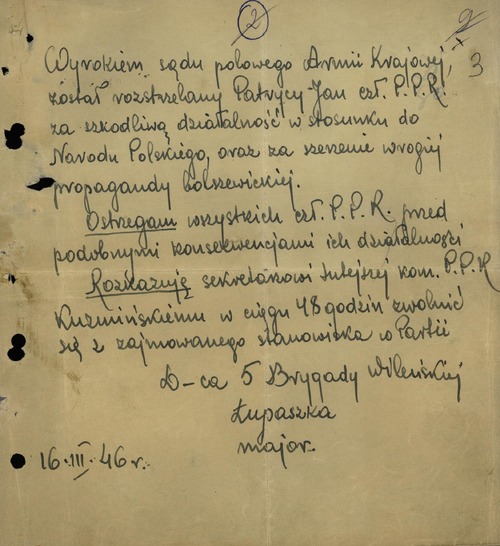 2
2
3
Wyrokiem sądu polowego Armii Krajowej,
został rozstrzelany Patrycy Jan czł. P.P.R.
za szkodliwą działalność w stosunku do
Narodu Polskiego, oraz za szerzenie wrogiej
propagandy bolszewickiej.
Ostrzegam wszystkich czł. P.P.R. przed
podobnymi konsekwencjami ich działalności
Rozkazuję sekretarzowi tutejszej kom. P.P.R
Kuzmińskiemu w ciągu 48 godzin zwolnić
się z zajmowanego stanowiska w Partii
D-ca 5 Brygady Wileńskiej
Łupaszka
major.
16.III.46 r.